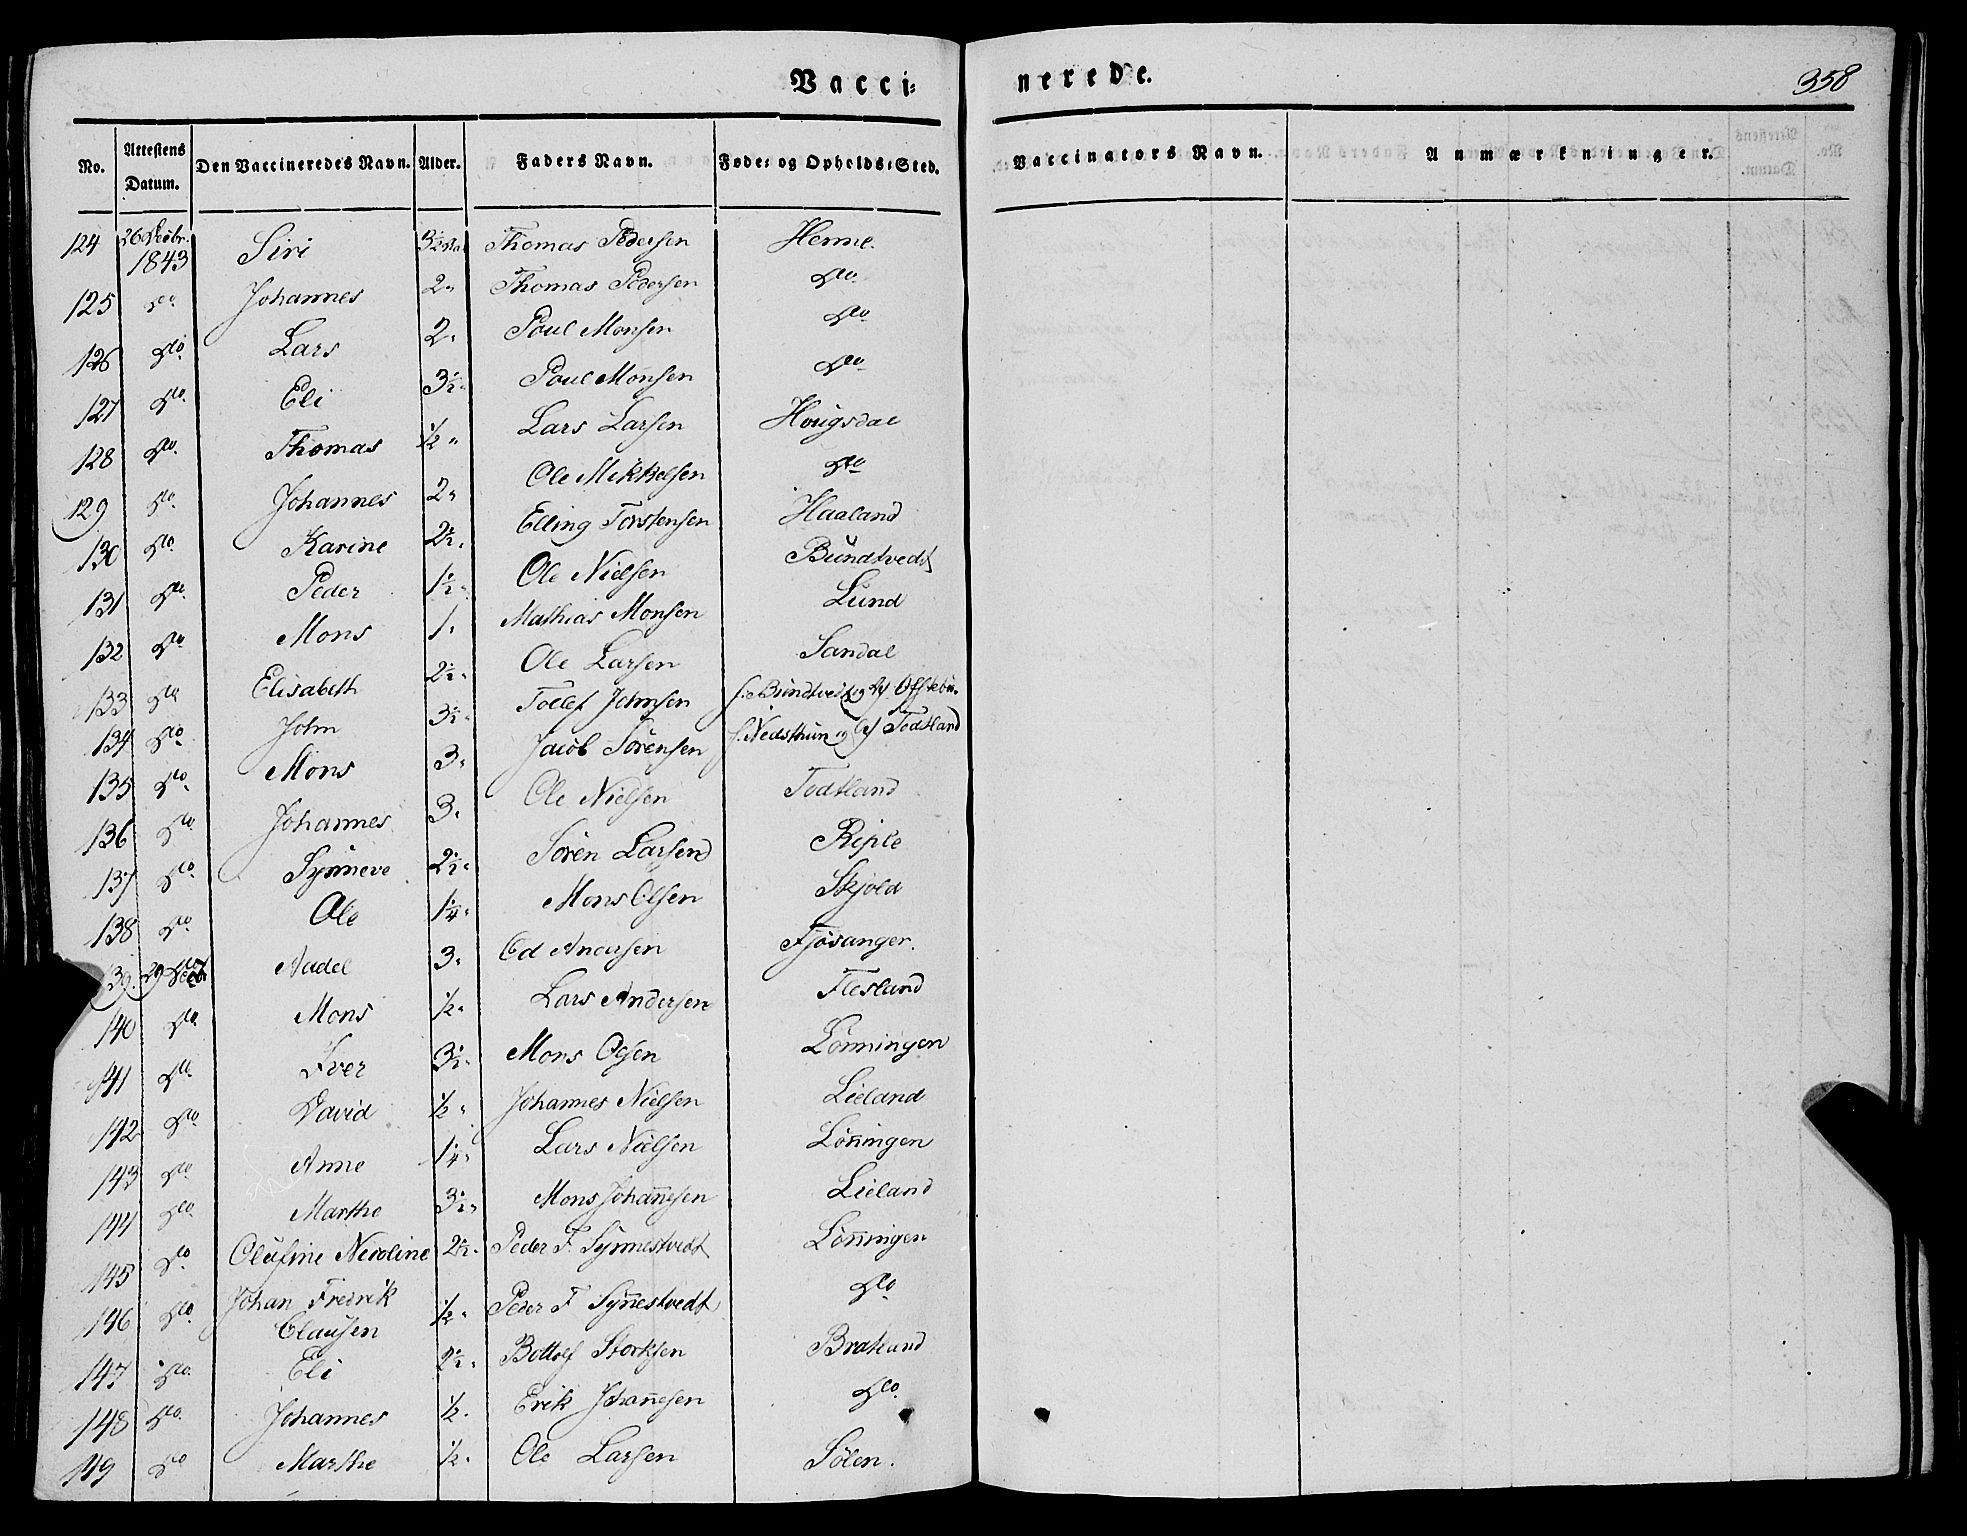 Vacci-
nerede.
358
No. Attestens Datum. Den Vaccineredes Navn. Alder. Faders Navn. Føde- og Opholds-Sted. Vaccinators Navn. Anmærkninger.
124 26 Decbr. 1843 Siri 3½ Thomas Pedersen Henne.
125 do Johannes 2 Thomas Pedersen do
126 do Lars 2 Poul Monsen do
127 do Eli 3½ Poul Monsen do
128 do Thomas ½ Lars Larsen Hougsdal
129 do Johannes 2 Ole Mikkelsen do
130 do Karine 2½ Elling Torstensen Haaland
131 do Peder 1½ Ole Nielsen Bundtvedt
132 do Mons 1 Mathias Monsen Lund
133 do Elisabeth 2½ Ole Larsen Sandal
134 do John 3½ Tollef Johnsen f. Bundtvedt og
135 do Mons 3 Jacob Sørensen f. Nedsthun og Todtland
136 do Johannes 3 Ole Nielsen Todtland
137 do Synneve 2½ Søren Larsen Riple
138 do Ole 1¼ Mons Olsen Skjold
139 29 Decbr Nadel 3 Od Andersen Fjøsanger.
140 do Mons ½ Lars Andersen Flesland
141 do Iver 3½ Mons Olsen Lønningen
142 do David ½ Johannes Nielsen Lieland
143 do Anne 1¼ Lars Nielsen Løningen
144 do Marthe 3½ Mons Johanesen Lieland
145 do Olufine Nicoline 2½ Peder F. Synnestvedt Løningen
146 do Johan Fredrik Clausen ½ Peder F Synestvedt do
147 do Eli 2½ Bottolf Storksen Bratlund
148 do Johannes ½ Erik Johanesen do
149 do Marthe ½ Ole Larsen Sølen.